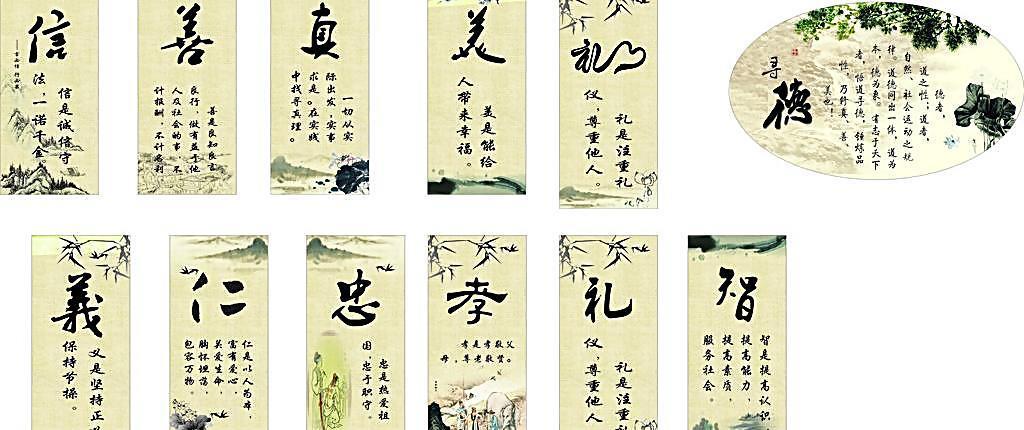 信
信是诚信悟守
法,一诺千金。
善
善是良知良言
良行,做有益于他
人及社会的事,不
计报酬,不计名利
真
一切从实
际出发,实事
求是。在实践
中找寻真理
美
美是能给
人带来幸福。
礼
礼是注重礼
仪,尊重他人。
寻
德
德者,
道之性;道者,
自然、社会运动之规
律。道德同出一体,道为
本,德为象。有志于天下
者,悟道寻德,锤炼品
性,乃修真、善、
美也!
義
义是坚持正
保持节操。
仁
仁是以人为本,
富有爱心,
关爱生命,
胸怀坦荡,
包容万物。
忠
忠是热爱祖
国,忠于职守。
孝
孝是孝敬父
母,尊老敬贤。
礼
礼是注重礼
仪,尊重他人
智
智是提高认识
提高能力,
提高素质,
服务社会。